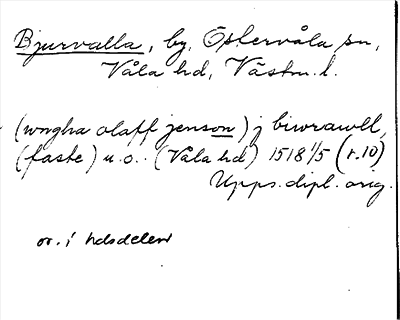 Bjurvalla, by, Östervåla sn,
Våla hd, Västm. l.
(wngha olaff jenson) j biwrawll,
(faste) u.o. (Våla hd) 1518 1/5 (r.10)
Upps. dipl. orig.
or. i hdsdelen